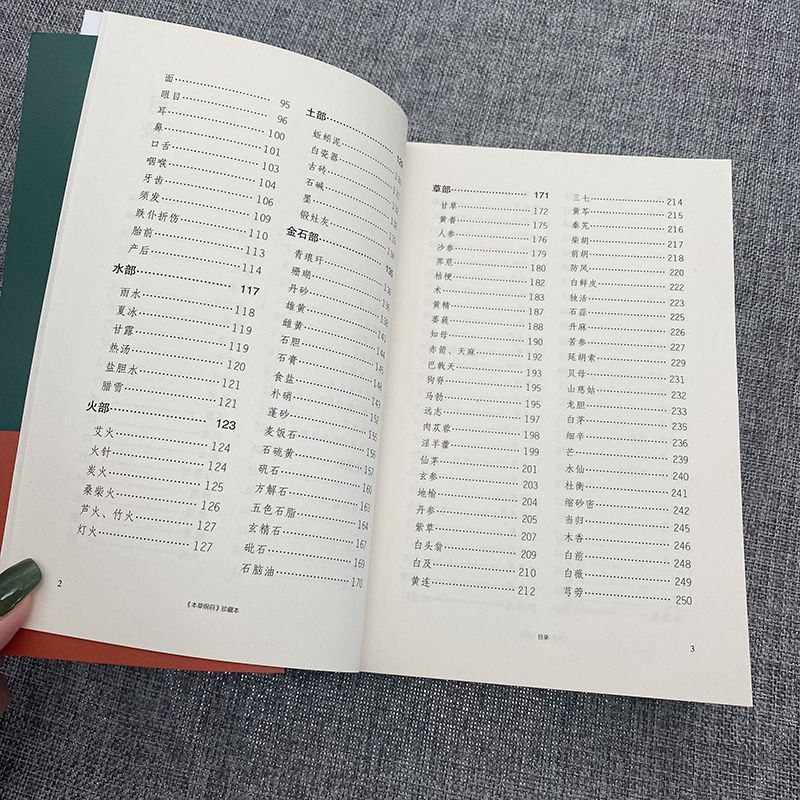 面 95
眼目 96
耳 100
鼻 101
口舌 103
咽喉 104
牙齿 106
须发 109
跌仆折伤 110
胎前 113
产后 114
水部 117
雨水 118
夏冰 119
甘露 119
热汤 120
盐胆水 121
腊雪 121
火部 123
艾火 124
火针 124
炭火 125
桑柴火 126
芦火、竹火 127
灯火 127
土部
蚯蚓泥
白瓷器
古砖
石碱
墨
锻灶灰
金石部
青琅玕
珊瑚
丹砂
雄黄
雌黄
石胆
石膏
食盐
朴硝
蓬砂
麦饭石
石硫黄 157
矾石 160
方解石
五色石脂 164
玄精石 167
砒石 169
石脑油 170
2
《本草纲目》珍藏本
草部 171
甘草 172
黄耆 175
人参 176
沙参 179
荠苨 180
桔梗 182
术 183
黄精 187
萎蕤 188
知母 190
赤箭、天麻 192
巴戟天 193
狗脊 195
马勃 195
远志 196
肉苁蓉 198
淫羊藿 199
仙茅 201
玄参 203
地榆 204
丹参 205
紫草 207
白头翁 209
白及 210
黄连 212
三七 214
黄芩 215
秦艽 216
柴胡 217
前胡 218
防风 220
白鲜皮 222
独活
石蒜 225
升麻 226
苦参
延胡索 229
贝母 231
山慈姑 232
龙胆 233
白茅 235
细辛 238
芒 239
水仙 240
杜衡 241
缩砂密 242
当归 245
木香 246
白前 248
白薇 249
芎䓖 250
目录
3